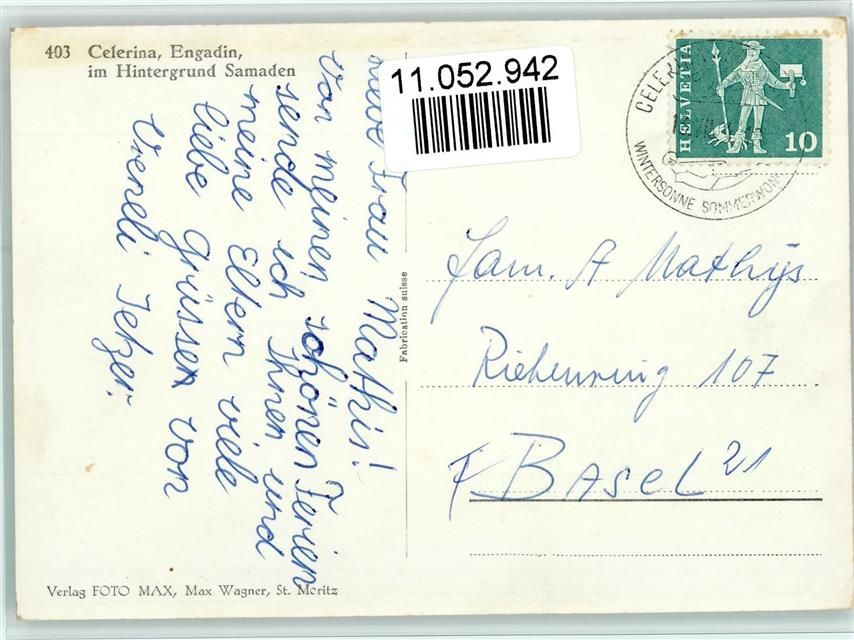 403 Celerina, Engadin,
im Hintergrund Samaden
11.052.942
HELVETIA
10
WINTERSONNE SOMMERWONNE
Frau Mathis!
Von meinen schönen Ferien
sende ich Ihnen und
meine Eltern viele
liebe Grüssen von
Vreneli Jetzer.
Fabrication suisse
Fam. A Mathys
Riehenring 107
Basel 21
Verlag FOTO MAX, Max Wagner, St. Moritz